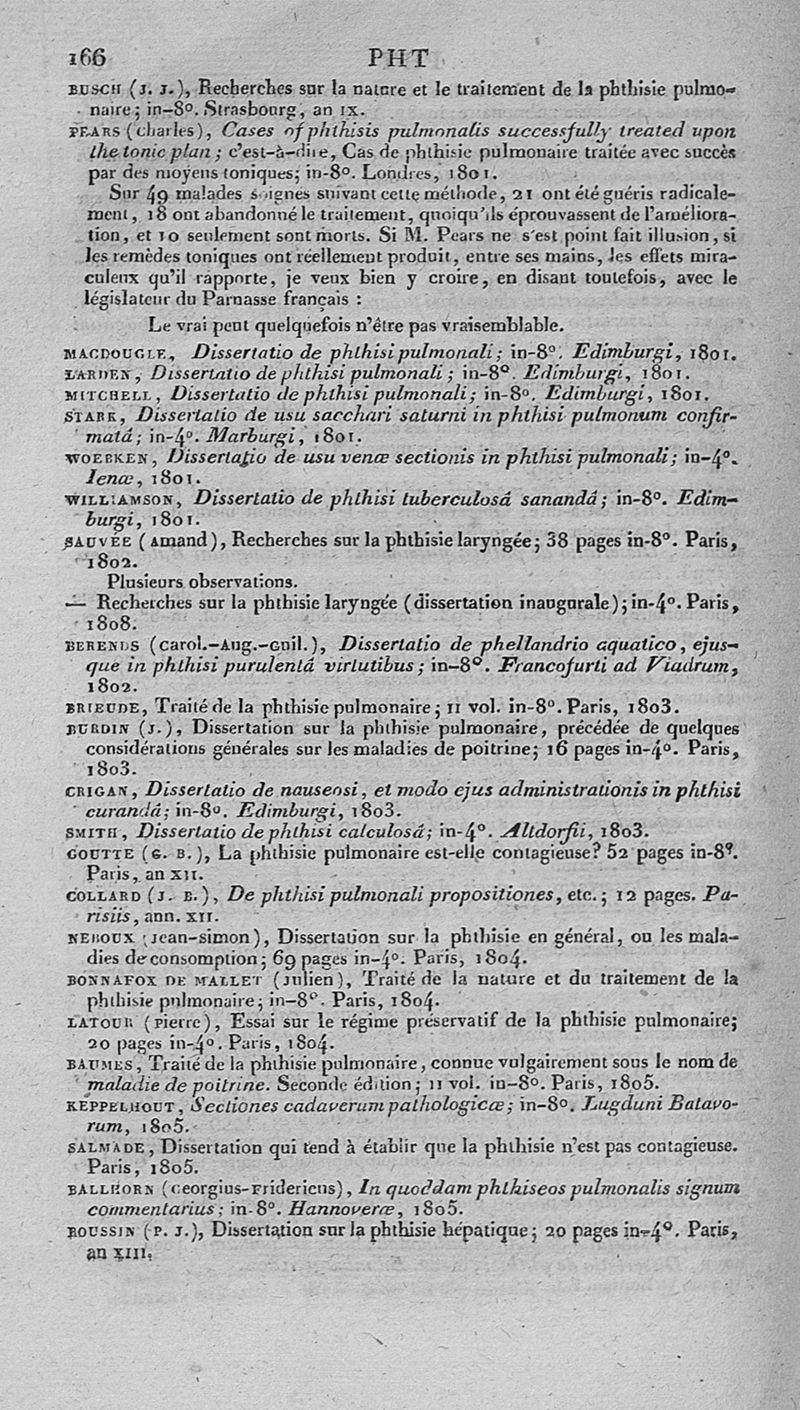 166 PHT
BUSCH (J. J.), Recherches sur la nature et le traitement de la phthisie pulmo-
naire; in-8°. Strasbourg, an IX.
PEARS (charles), Cases of phthisis pulmonalis successfully treated upon
the tonic plan; c'est-à-dire, Cas de phthisie pulmonaire traitée avec succès
par des moyens toniques; in-8°. Londres, 1801.
Sur 49 malades soignés suivant cette méthode, 21 ont été guéris radicale-
ment, 18 ont abandonné le traitement, quoiqu'ils éprouvassent de l'améliora-
tion, et 10 seulement sont morts. Si M. Pears ne s'est point fait illusion, si
les remèdes toniques ont réellement produit, entre ses mains, les effets mira-
culeux qu'il rapporte, je veux bien y croire, en disant toutefois, avec le
législateur du Parnasse français :
Le vrai peut quelquefois n'être pas vraisemblable.
MACDOUGLE, Dissertatio de phthisi pulmonali; in-8°. Edimburgi, 1801.
LARDEN, Dissertatio de phthisi pulmonali; in-8°. Edimburgi, 1801.
MITCHELL, Dissertatio de phthisi pulmonali; in-8°. Edimburgi, 1801.
STARK, Dissertatio de usu sacchari saturni in phthisi pulmonum confir-
matâ; in-4°. Marburgi, 1801.
WOEBKEN, Dissertatio de usu venæ sectionis in phthisi pulmonali; in-4°.
Ienæ, 1801.
WILLIAMSON, Dissertatio de phthisi tuberculosâ sanandâ; in-8°. Edim-
burgi, 1801.
SAUVÉE (Amand), Recherches sur la phthisie laryngée; 38 pages in-8°. Paris,
1802.
Plusieurs observations.
— Recherches sur la phthisie laryngée (dissertation inaugurale); in-4°. Paris,
1808.
BERENDS (Carol.-Aug.-Guil.), Dissertatio de phellandrio aquatico, ejus-
que in phthisi purulentâ virtutibus; in-8°. Francofurti ad Viadrum,
1802.
BRIEUDE, Traité de la phthisie pulmonaire; II vol. in-8°. Paris, 1803.
BURDIN (J.), Dissertation sur la phthisie pulmonaire, précédée de quelques
considérations générales sur les maladies de poitrine; 16 pages in-4°. Paris,
1803.
CRIGAN, Dissertatio de nauseosi, et modo ejus administrationis in phthisi
curandâ; in-8°. Edimburgi, 1803.
SMITH, Dissertatio de phthisi calculosâ; in-4°. Altdorfii, 1803.
GOUTTE (G. B.), La phthisie pulmonaire est-elle contagieuse? 52 pages in-8°.
Paris, an XII.
COLLARD (J. B.), De phthisi pulmonali propositiones, etc.; 12 pages. Pa-
risiis, ann. XII.
NEROUX (Jean-Simon), Dissertation sur la phthisie en général, ou les mala-
dies de consomption; 69 pages in-4°. Paris, 1804.
BONNAFOX DE MALLET (Julien), Traité de la nature et du traitement de la
phthisie pulmonaire; in-8°. Paris, 1804.
LATOUR (Pierre), Essai sur le régime préservatif de la phthisie pulmonaire;
20 pages in-4°. Paris, 1804.
BAUMES, Traité de la phthisie pulmonaire, connue vulgairement sous le nom de
maladie de poitrine. Seconde édition; II vol. in-8°. Paris, 1805.
KEPPELHOUT, Sectiones cadaverum pathologicæ; in-8°. Lugduni Batavo-
rum, 1805.
SALMADE, Dissertation qui tend à établir que la phthisie n'est pas contagieuse.
Paris, 1805.
BALLHORN (Georgius-Fridericus), In quoddam phthiseos pulmonalis signum
commentarius; in-8°. Hannoveræ, 1805.
ROUSSIN (P. J.), Dissertation sur la phthisie hépatique; 20 pages in-4°. Paris,
an XIII.